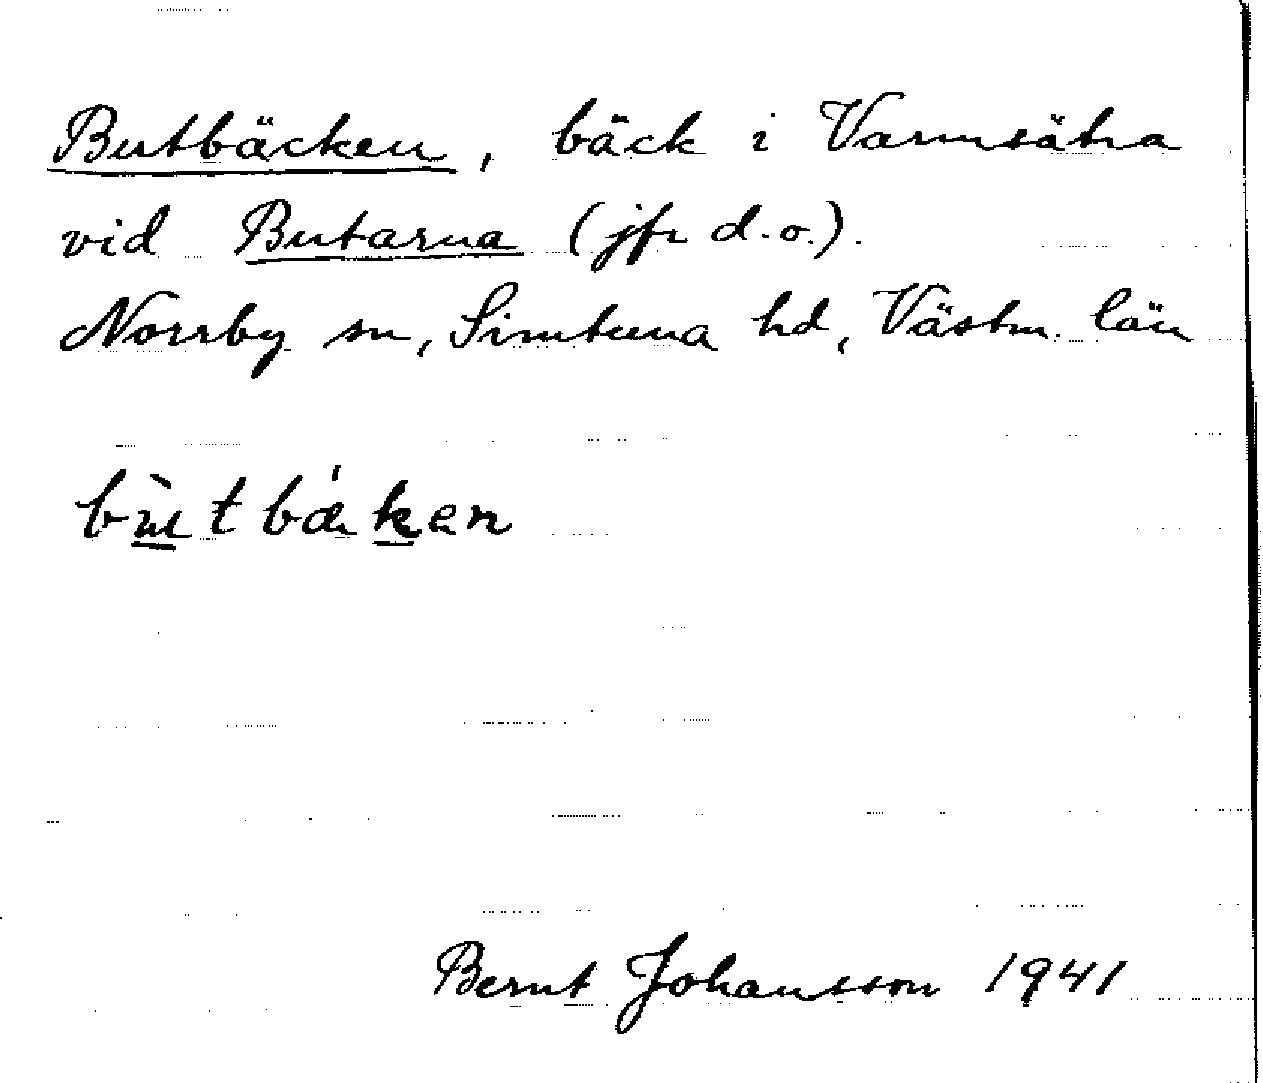 Butbäcken, bäck i Varmsätra
vid Butarna (jfr d.o.).
Norrby sn, Simtuna hd, Västm. län
bùtbækan
Bernt Johansson 1941